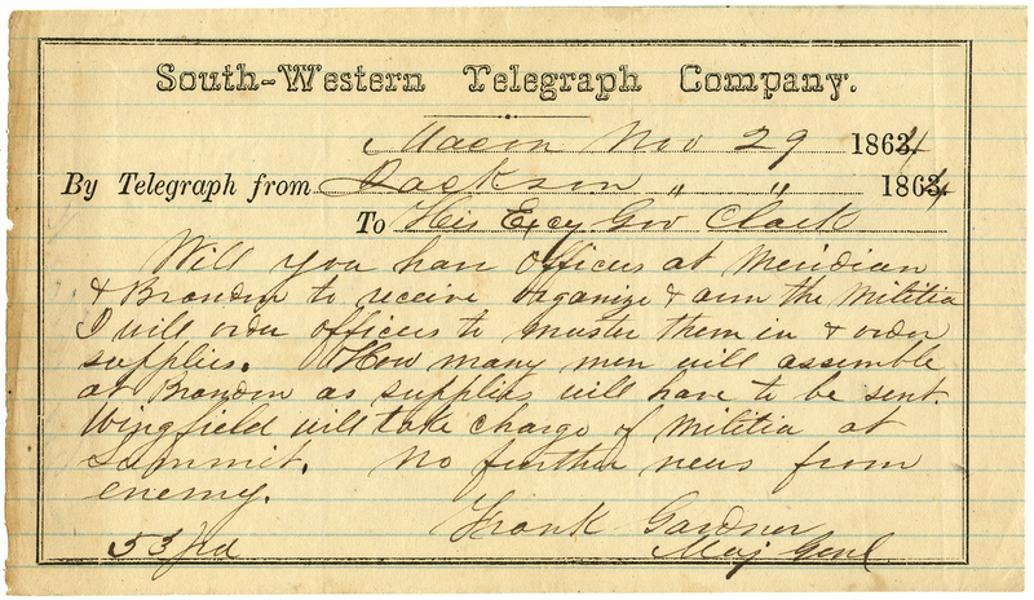 South-Western Telegraph Company.
Macon Nov 29 1864
By Telegraph from Jackson " " 1864
To His Excy Gov Clark
Will you have Officers at Meridian
& Brandon to receive organize & arm the Militia
I will order officers to muster them in & order
supplies. How many men will assemble
at Brandon as supplies will have to be sent.
Wingfield will take charge of Militia at
Summit. No further news from
enemy.
Frank Gardner
53 pd Maj Genl